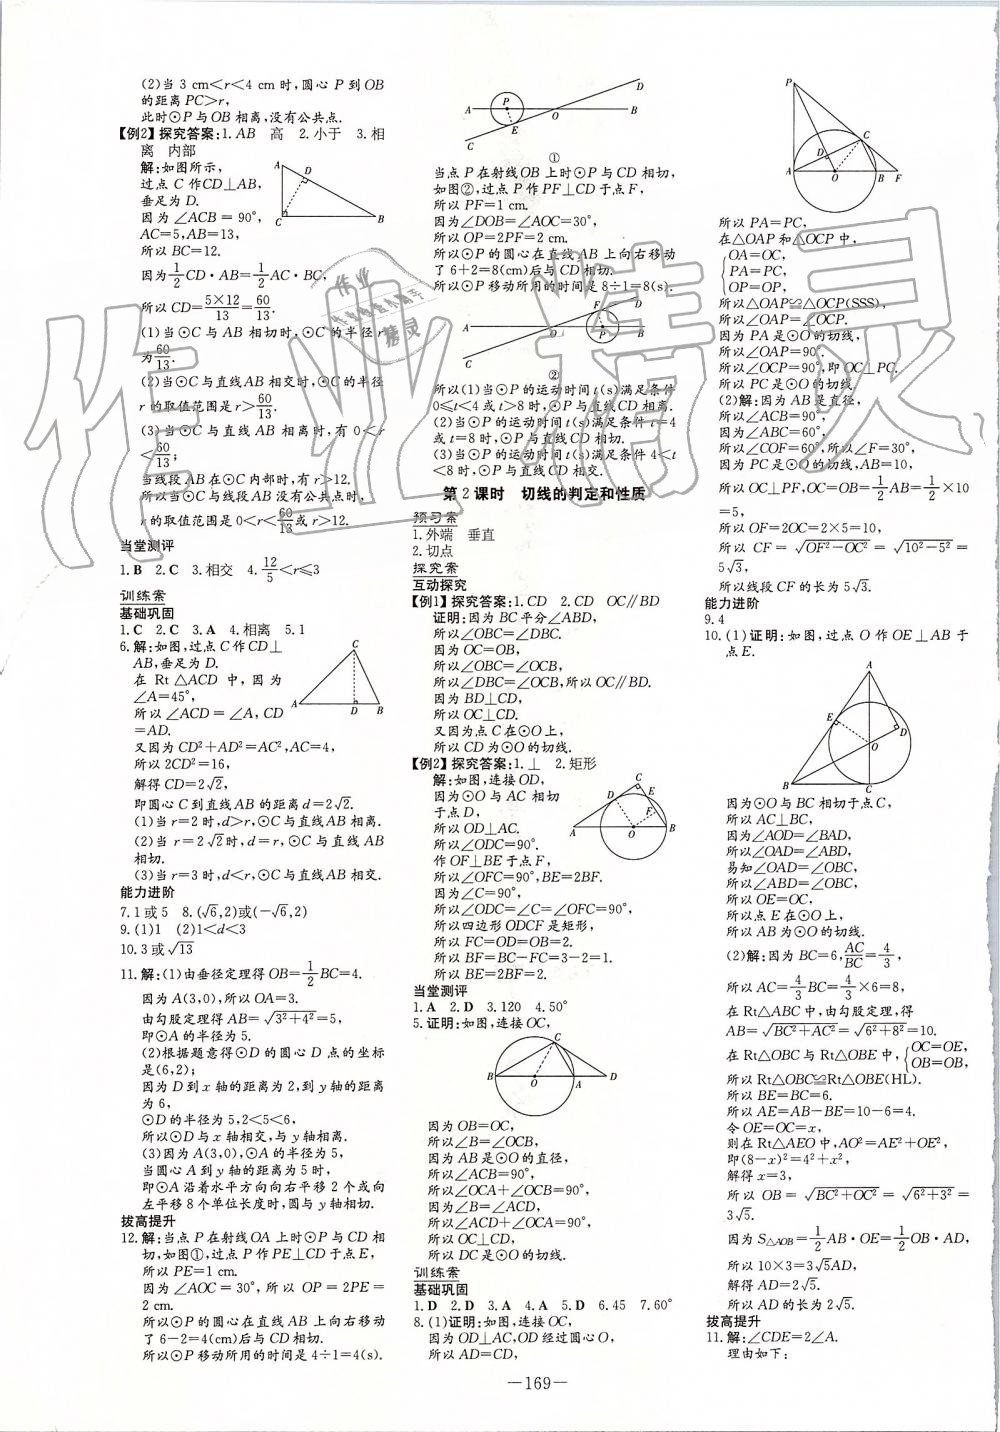 (2)当 3 cm<r<4 cm 时,圆心 P 到 OB
的距离 PC>r,
此时⊙P 与 OB 相离,没有公共点.
【例2】探究答案:1.AB 高 2.小于 3.相
离 内部
解:如图所示,
过点 C 作CD⊥AB,
垂足为 D.
因为∠ACB=90°,
AC=5,AB=13,
所以 BC=12.
因为1/2CD·AB=1/2AC·BC,
所以 CD=5×12/13=60/13.
(1)当⊙C 与 AB 相切时,⊙C 的半径 r
为60/13.
(2)当⊙C 与直线AB 相交时,⊙C 的半径
r 的取值范围是 r>60/13.
(3)当⊙C 与直线 AB 相离时,有 0<r
<60/13;
当线段 AB 在⊙C 内部时,有 r>12.
所以当⊙C 与线段 AB 没有公共点时,
r 的取值范围是 0<r<60/13或 r>12.
当堂测评
1.B 2.C 3.相交 4.12/5<r≤3
训练案
基础巩固
1.C 2.C 3.A 4.相离 5.1
6.解:如图,过点 C 作 CD⊥
AB,垂足为 D.
在 Rt△ACD 中,因为
∠A=45°,
所以∠ACD=∠A,CD
=AD.
又因为 CD²+AD²=AC²,AC=4,
所以 2CD²=16,
解得 CD=2√2.
即圆心 C 到直线AB 的距离 d=2√2.
(1)当 r=2 时,d>r,⊙C 与直线 AB 相离.
(2)当 r=2√2时,d=r,⊙C 与直线 AB
相切.
(3)当 r=3 时,d<r,⊙C 与直线 AB 相交.
能力进阶
7.1 或 5 8.(√6,2)或(-√6,2)
9.(1)1 (2)1<d<3
10.3 或√13
11.解:(1)由垂径定理得 OB=1/2BC=4.
因为 A(3,0),所以 OA=3.
由勾股定理得 AB=√3²+4²=5,
即⊙A 的半径为 5.
(2)根据题意得⊙D 的圆心 D 点的坐标
是(6,2);
因为 D 到 x 轴的距离为 2,到 y 轴的距离
为 6,
⊙D 的半径为 5,2<5<6,
所以⊙D 与 x 轴相交,与 y 轴相离.
(3)因为 A(3,0),⊙A 的半径为 5,
当圆心 A 到 y 轴的距离为 5 时,
即⊙A 沿着水平方向向右平移 2 个或向
左平移 8 个单位长度时,圆与 y 轴相切.
拔高提升
12.解:当点 P 在射线 OA 上时⊙P 与 CD 相
切,如图①,过点 P 作 PE⊥CD 于点 E,
所以 PE=1 cm.
因为∠AOC=30°,所以 OP=2PE=
2 cm.
所以⊙P 的圆心在直线 AB 上向右移动
了 6-2=4(cm)后与 CD 相切.
所以⊙P 移动所用的时间是 4÷1=4(s).
①
当点 P 在射线OB 上时⊙P 与 CD 相切,
如图②,过点 P 作 PF⊥CD 于点 F,
所以 PF=1 cm.
因为∠DOB=∠AOC=30°,
所以 OP=2PF=2 cm.
所以⊙P 的圆心在直线 AB 上向右移动
了 6+2=8(cm)后与 CD 相切.
所以⊙P 移动所用的时间是 8÷1=8(s).
②
所以(1)当⊙P 的运动时间 t(s)满足条件
0≤t<4 或 t>8 时,⊙P 与直线CD 相离.
(2)当⊙P 的运动时间 t(s)满足条件 t=4
或 t=8 时,⊙P 与直线 CD 相切.
(3)当⊙P 的运动时间 t(s)满足条件 4<t
<8 时,⊙P 与直线 CD 相交.
第 2 课时 切线的判定和性质
预习案
1.外端 垂直
2.切点
探究案
互动探究
【例1】探究答案:1.CD 2.CD OC∥BD
证明:因为 BC 平分∠ABD,
所以∠OBC=∠DBC.
因为 OC=OB,
所以∠OBC=∠OCB,
所以∠DBC=∠OCB,所以 OC∥BD.
因为 BD⊥CD,
所以 OC⊥CD.
又因为点 C 在⊙O 上,
所以 CD 为⊙O 的切线.
【例2】探究答案:1.⊥ 2.矩形
解:如图,连接 OD,
因为⊙O 与 AC 相切
于点 D,
所以 OD⊥AC.
所以∠ODC=90°.
作 OF⊥BE 于点 F,
所以∠OFC=90°,BE=2BF.
因为∠C=90°,
所以∠ODC=∠C=∠OFC=90°,
所以四边形 ODCF 是矩形,
所以 FC=OD=OB=2.
所以 BF=BC-FC=3-2=1.
所以 BE=2BF=2.
当堂测评
1.A 2.D 3.120 4.50°
5.证明:如图,连接 OC,
因为 OB=OC,
所以∠B=∠OCB,
因为 AB 是⊙O 的直径,
所以∠ACB=90°,
所以∠OCA+∠OCB=90°,
因为∠B=∠ACD,
所以∠ACD+∠OCA=90°,
所以 OC⊥CD,
所以 DC 是⊙O 的切线.
训练案
基础巩固
1.D 2.D 3.A 4.A 5.D 6.45 7.60°
8.(1)证明:如图,连接 OC,
因为 OD⊥AC,OD 经过圆心 O,
所以 AD=CD,
所以 PA=PC,
在△OAP 和△OCP 中,
OA=OC,
PA=PC,
OP=OP,
所以△OAP≌△OCP(SSS),
所以∠OAP=∠OCP.
因为 PA 是⊙O 的切线,
所以∠OAP=90°.
所以∠OCP=90°,即 OC⊥PC.
所以 PC 是⊙O 的切线.
(2)解:因为 AB 是直径,
所以∠ACB=90°,
因为∠ABC=60°,
所以∠COF=60°,所以∠F=30°,
因为 PC 是⊙O 的切线,AB=10,
所以 OC⊥PF,OC=OB=1/2AB=1/2×10
=5,
所以 OF=2OC=2×5=10,
所以 CF=√OF²-OC²=√10²-5²=
5√3,
所以线段 CF 的长为 5√3.
能力进阶
9.4
10.(1)证明:如图,过点 O 作 OE⊥AB 于
点 E.
因为⊙O 与 BC 相切于点 C,
所以 AC⊥BC,
因为∠AOD=∠BAD,
所以∠OAD=∠ABD,
易知∠OAD=∠OBC,
所以∠ABD=∠OBC,
所以 OE=OC,
所以点 E 在⊙O 上,
所以 AB 为⊙O 的切线.
(2)解:因为 BC=6,AC/BC=4/3,
所以 AC=4/3BC=4/3×6=8,
在 Rt△ABC 中,由勾股定理,得
AB=√BC²+AC²=√6²+8²=10.
在 Rt△OBC 与 Rt△OBE 中,{OC=OE,
OB=OB,
所以 Rt△OBC≌Rt△OBE(HL).
所以 BE=BC=6.
所以 AE=AB-BE=10-6=4.
令 OE=OC=x,
则在 Rt△AEO 中,AO²=AE²+OE²,
即(8-x)²=4²+x²,
解得 x=3,
所以 OB=√BC²+OC²=√6²+3²=
3√5.
因为 S△AOB=1/2AB·OE=1/2OB·AD,
所以 10×3=3√5AD,
解得 AD=2√5.
所以 AD 的长为 2√5.
拔高提升
11.解:∠CDE=2∠A.
理由如下:
—169—